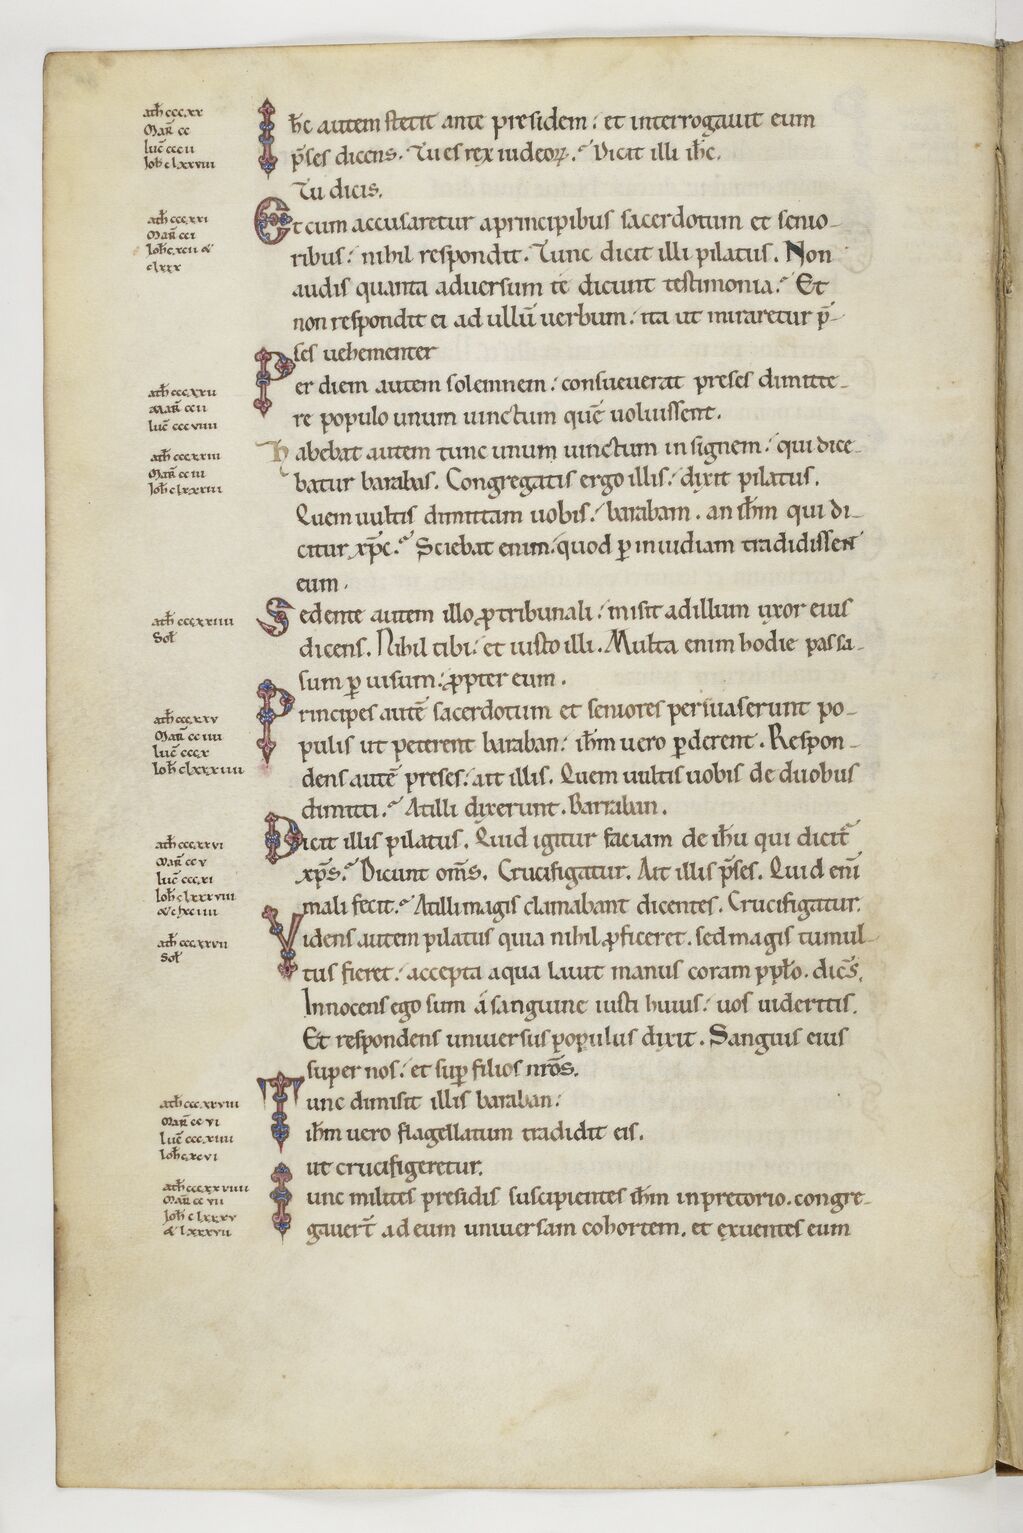 ath̄ cccxx
Mar̄ cc
luc̄ cccii
Ioh̄ clxxviii
Ih̄c autem stetit ante presidem: et interrogauit eum
p̄ses dicens. Tu es rex iudeoꝝ. Dicit illi ih̄c.
Tu dicis.
ath̄ cccxxi
Mar̄ cci
Ioh̄ cxcii &
clxxx
Et cum accusaretur aprincipibus sacerdotum et senio-
ribus: nihil respondit. Tunc dicit illi pilatus. Non
audis quanta aduersum te dicunt testimonia. Et
non respondit ei ad ullū uerbum: ita ut miraretur p̄-
ses uehementer
ath̄ cccxxii
Mar̄ ccii
luc̄ cccviiii
Per diem autem solemnem: consueuerat preses dimitte-
re populo unum uinctum quē uoluissent.
ath̄ cccxxiii
Mar̄ cciii
Ioh̄ clxxxiii
habebat autem tunc unum uinctum insignem: qui dice-
batur barabas. Congregatis ergo illis: dixit pilatus.
Quem uultis dimittam uobis: barabam. an ih̄m qui di-
citur xp̄c. Sciebat enim: quod ꝑ inuidiam tradidissent
eum.
ath̄ cccxxiiii
Sol̄
Sedente autem illo ꝓ tribunali: misit adillum uxor eius
dicens. Nihil tibi: et iusto illi. Multa enim hodie passa-
sum ꝑ uisum: ꝓpter eum.
ath̄ cccxxv
Mar̄ cciiii
luc̄ cccx
Ioh̄ clxxxiiii
Principes autē sacerdotum et seniores persuaserunt po-
pulis ut peterent baraban: ih̄m uero ꝑderent. Respon-
dens autē preses: ait illis. Quem uultis uobis de duobus
dimitti. Atilli dixerunt. Barraban.
ath̄ cccxxvi
Mar̄ ccv
luc̄ cccxi
Ioh̄ clxxxviii
& cxciiii
Dicit illis pilatus. Quid igitur faciam de ih̄u qui dicit̄
xp̄s. Dicunt om̄s. Crucifigatur. Ait illis p̄ses. Quid eni̅
mali fecit. Atilli magis clamabant dicentes. Crucifigatur.
ath̄ cccxxvii
Sol̄
Videns autem pilatus quia nihil ꝓficeret. sed magis tumul-
tus fieret: accepta aqua lauit manus coram ppl̄o. dic̄s.
Innocens ego sum á sanguine iusti huius: uos uideritis.
Et respondens uniuersus populus dixit. Sanguis eius
super nos: et suꝑ filios nr̄os.
ath̄ cccxxviii
Mar̄ ccvi
luc̄ cccxiiii
Ioh̄ cxcvi
Tunc dimisit illis baraban:
ih̄m uero flagellatum tradidit eis.
ut crucifigeretur.
ath̄ cccxxviiii
Mar̄ ccvii
Ioh̄ clxxxv
& lxxxvii
Tunc milites presidis suscipientes ih̄m inpretorio. congre-
gauer̄t ad eum uniuersam cohortem. et exuentes eum